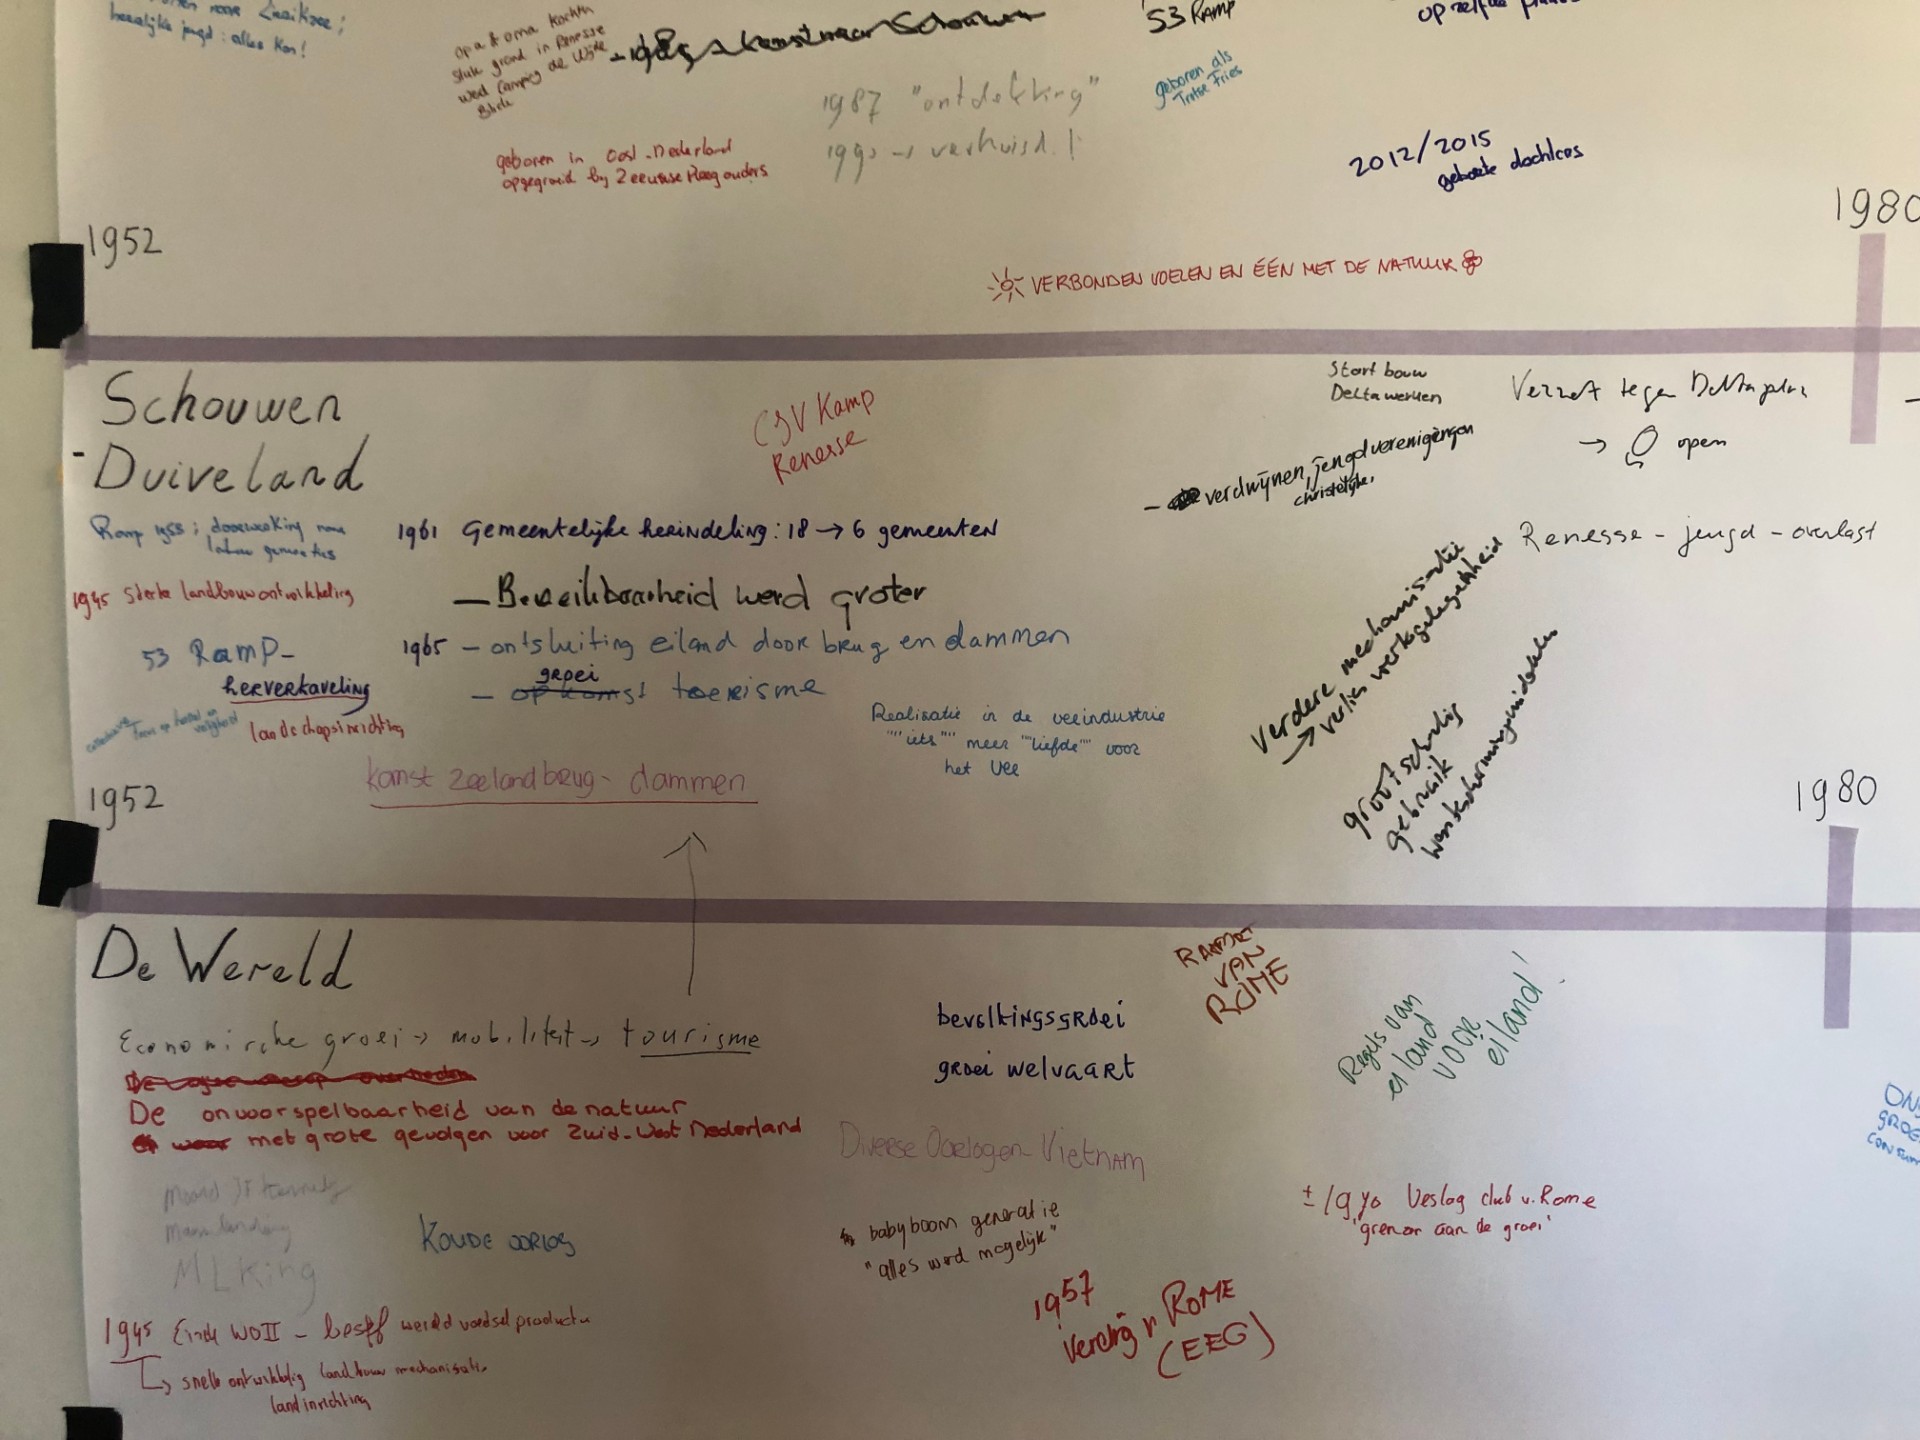 heerlijke jeugd: alles kon!
opa & oma kochten
stuk grond in Renesse
werd Camping de Wijde
Blick
geboren in Oost-Nederland
opgegroeid bij Zeeuwse Pleegouders
1987 "ontdekking"
1990 → verhuisd!
53 RAMP
geboren als
Trotse Fries
op zelfde
2012/2015
geboorte dochters
1952
1980
VERBONDEN VOELEN EN ÉÉN MET DE NATUUR
Schouwen
- Duiveland
CJV Kamp
Renesse
Start bouw
Deltawerken
Verzet tegen Deltaplan
→ O open
- verdwijnen jeugdverenigingen
christelijke
Ramp 1953; doorwerking naar
1961 Gemeentelijke herindeling: 18 → 6 gemeenten
Renesse - jeugd - overlast
1945 Sterke landbouwontwikkeling
— Bereikbaarheid werd groter
53 Ramp -
herverkaveling
landschapsinrichting
1965 - ontsluiting eiland door brug en dammen
groei
- opkomst toerisme
Realisatie in de veeindustrie
""iets"" meer ""liefde"" voor
het vee
verdere mechanisatie
→ verlies werkgelegenheid
grootschalig
gebruik
komst Zeelandbrug - dammen
1952
1980
De Wereld
Economische groei → mobiliteit → tourisme
De onvoorspelbaarheid van de natuur
met grote gevolgen voor Zuid-West Nederland
bevolkingsgroei
groei welvaart
RAPPORT
VAN
ROME
Regels van
eiland
voor
eiland!
Diverse Oorlogen Vietnam
Moord JF Kennedy
Maanlanding
ML King
Koude oorlog
babyboom generatie
"alles word mogelijk"
± 1970 Veslag club v. Rome
'grenzen aan de groei'
1957
Verdrag v ROME
(EEG)
1945 Einde WOII - besef wereld voedsel productie
snelle ontwikkeling landbouw mechanisatie
landinrichting